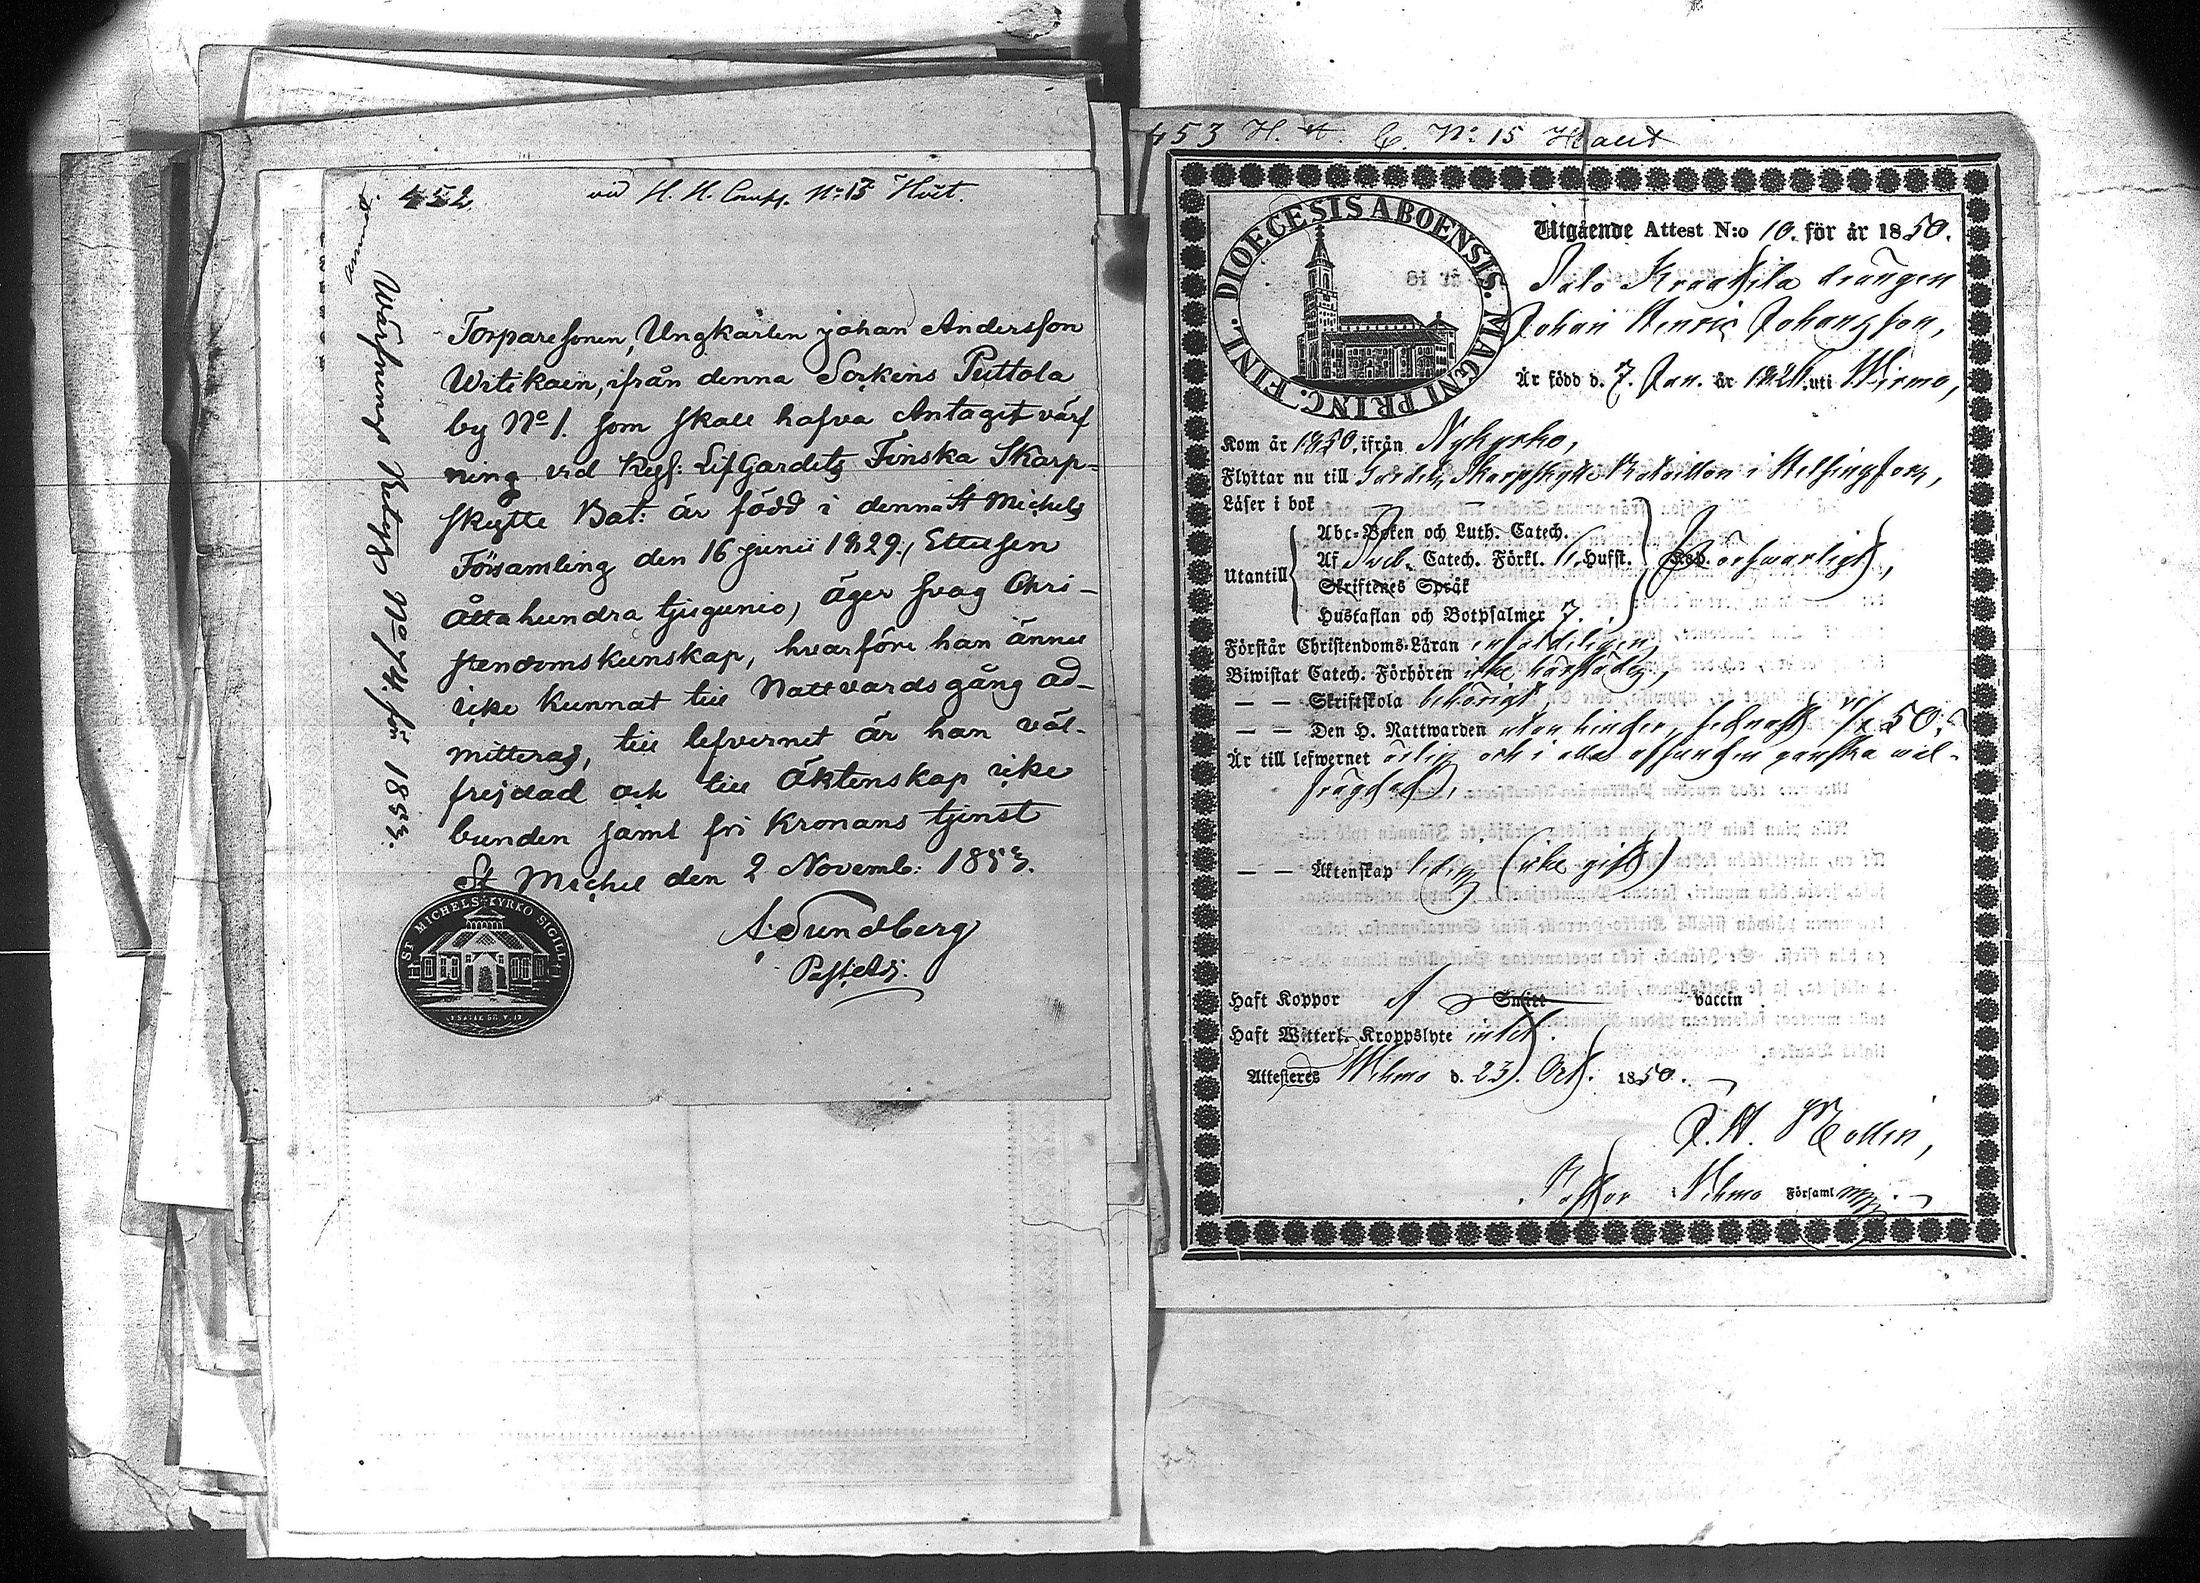 452. vid H. H. Comp. No: 13 Hvit.
Wärfnings Betyg No 74. för 1853.
Torparesonen, Ungkarlen johan Andersson
Witikain, ifrån denna Sockens Pettola
by No 1. som skall hafva Antagit värf
ning vid Kejs: LifGardets Finska Skarp=
skytte Bat: är född i denna St Michels
Församling den 16 junii 1829, (Ettusen
åtta hundra tjugunio) äger svag Chri-
stendomskunskap, hvarföre han ännu
icke kunnat till Nattvardsgång ad-
mitteras, till lefvernet är han väl-
frejdad och till Äktenskap icke
bunden samt fri Kronans tjenst
St Michel den 2 Novemb: 1853.
A. Sundberg
Past. Adj.
ST MICHELS KYRKO SIGILL
453 H. C. No: 15
DIOECESIS ABOENSIS. MAGNI PRINC. FINL.
Utgående Attest N:o 10. för år 1850.
Salo drängen
Johan Henric Johansson,
Är född d. 7. Jan. år uti Wirmo,
Kom år 1850. ifrån Nykyrko,
Flyttar nu till Gardets Skarpskytte Bataillon i Helsingfors,
Läser i bok
Utantill
Abc-Boken och Luth. Catech.
Af Sveb. Catech. Förkl. 11. Hufst.
Skriftenes Språk
Hustaflan och Botpsalmer 7.
försvarligt,
Förstår Christendoms-Läran enfaldeligen,
Biwistat Catech. Förhören icke
— — Skriftskola behörigt,
— — Den H. Nattwarden utan hinder, sednast 50.
Är till lefwernet ärlig och i alla afseenden ganska wäl-
frägdad,
— — Äktenskap ledig (icke gift)
Haft Koppor af Snätt vaccin
Haft Witterl. Kroppslyte intet.
Attesteres Wirmo d. 23. Oct. 1850.
Mollin,
Pastor i Wirmo Församling.